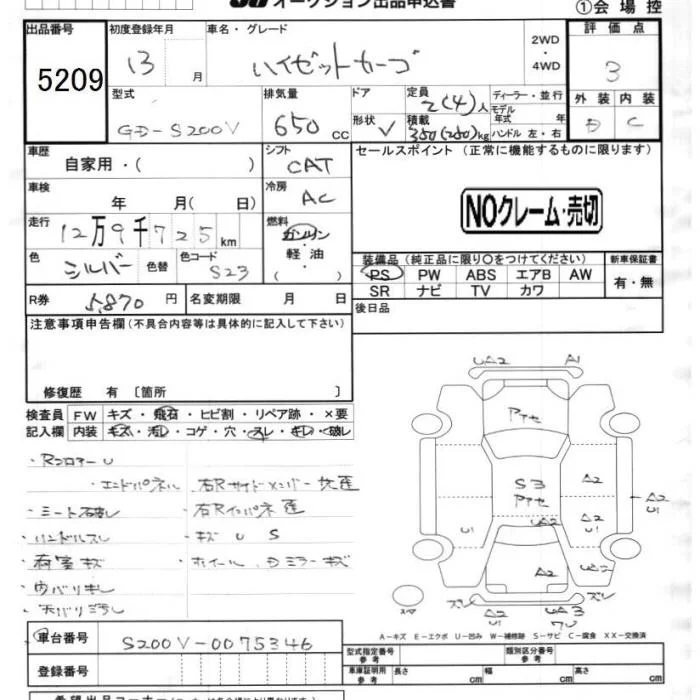 オークション出品申込書
①会場控
出品番号
5209
初度登録年月
13 月
車名・グレード
ハイゼットカーゴ
2WD
・
4WD
評価点
3
型式
GD-S200V
排気量
650 cc
ドア
形状 V
定員 2(4)人
積載 350(250)kg
ディーラー・並行
モデル年式 年
ハンドル 左・右
外装 内装
D C
車歴
自家用・( )
シフト
CAT
セールスポイント (正常に機能するものに限ります)
NOクレーム・売切
車検
年 月( 日)
冷房
AC
走行
12万9千725km
燃料
ガソリン
・
軽油
( )
色
シルバー
色替
色コード
S23
装備品 (純正品に限り○をつけてください)
新車保証書
PS PW ABS エアB AW
SR ナビ TV カワ
有・無
R券
5,870 円
名変期限 月 日
後日品
注意事項申告欄(不具合内容等は具体的に記入して下さい)
修復歴 有 〔箇所 〕
検査員
記入欄
FW キズ・飛石・ヒビ割・リペア跡・×要
内装 キズ・汚レ・コゲ・穴・スレ・キレ・破レ
・Rフロアー U
・エンドパネル 右Rサイドメンバー
・シート
・右Rインパネ 歪
・ハンドルスレ
・キズ U S
・荷室キズ
・ホイール、Dミラーキズ
・内バリキレ
・天バリ
UA2 A1
アセ
S3
アセ
UA2
A2
A2
U1
A2
U1
U1
A2
ズレ
A2
U1
UA3
ズレ
スペア
A-キズ E-エクボ U-凹み W-補修跡 S-サビ C-腐食 XX-交換済
車台番号
S200V-0075346
登録番号
型式指定番号
参考
類別区分番号
参考
車庫証明用
参考
長さ cm 幅 cm 高さ cm